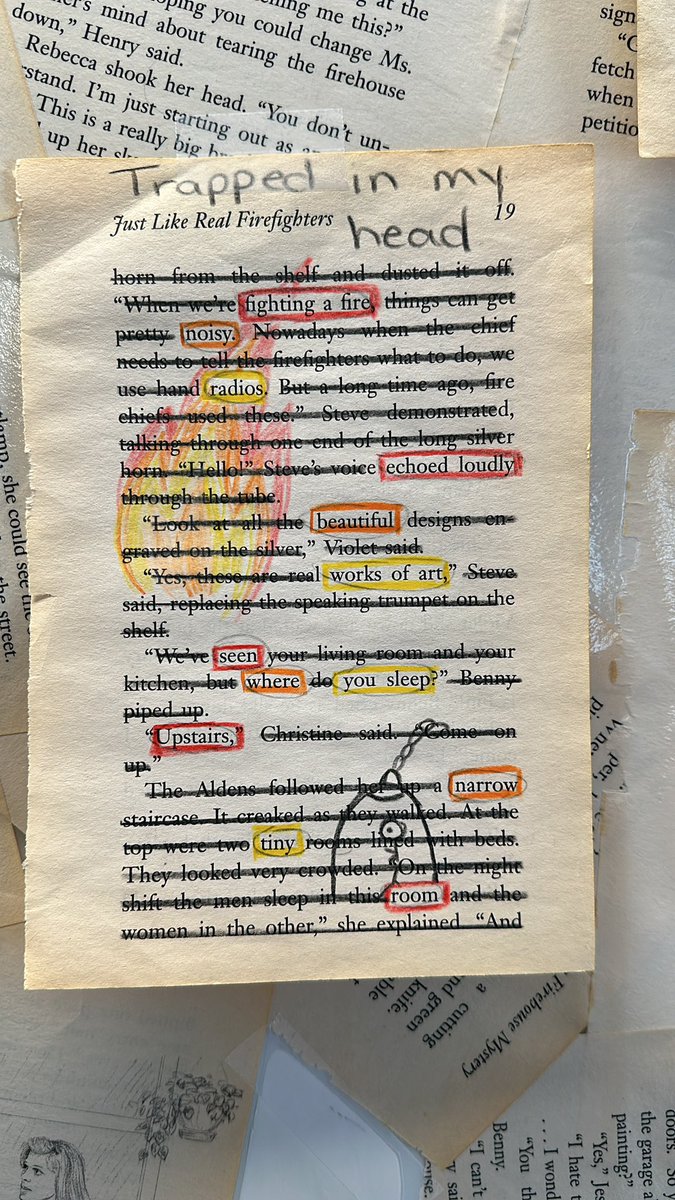 at the
me this?”
you could change Ms.
mind about tearing the firehouse
down,” Henry said.
Rebecca shook her head. “You don’t un-
stand. I’m just starting out as
This is a really big
up her
sign
fetch
when
petitio
Trapped in my
head
Just Like Real Firefighters 19
horn from the shelf and dusted it off.
“When we’re fighting a fire, things can get
pretty noisy. Nowadays when the chief
needs to tell the firefighters what to do, we
use hand radios. But a long time ago, fire
chiefs used these.” Steve demonstrated,
talking through one end of the long silver
horn. “Hello!” Steve’s voice echoed loudly
through the tube.
“Look at all the beautiful designs en-
graved on the silver,” Violet said.
“Yes, these are real works of art,” Steve
said, replacing the speaking trumpet on the
shelf.
“We’ve seen your living room and your
kitchen, but where do you sleep?” Benny
piped up.
“Upstairs,” Christine said. “Come on
up.”
The Aldens followed her up a narrow
staircase. It creaked as they walked. At the
top were two tiny rooms lined with beds.
They looked very crowded. “On the night
shift the men sleep in this room and the
women in the other,” she explained. “And
she could see
the street.
a cutting
and green
knife.
Firehouse Mystery
Benny.
“I can’t
“You
. . . I wond
“I hate
“Yes,” Je
painting?”
the garage
doors. So